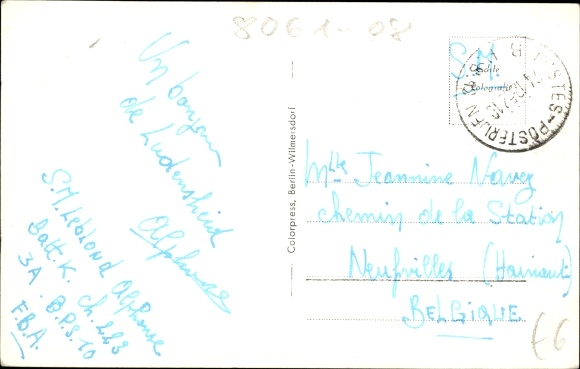 8061-08
Un bonjour
de Ludensheid
Alphonse
S.M. Leblond Alphonse
Batt. K. ch. 223
3A. B.P.S. 10
F.B.A.
Colorpress, Berlin-Wilmersdorf
S.M.
Echte
Fotografie
POSTES-POSTERIJEN
Mlle Jeannine Navez
chemin de la Station
Neufvilles (Hainaut)
BELGIQUE
€6